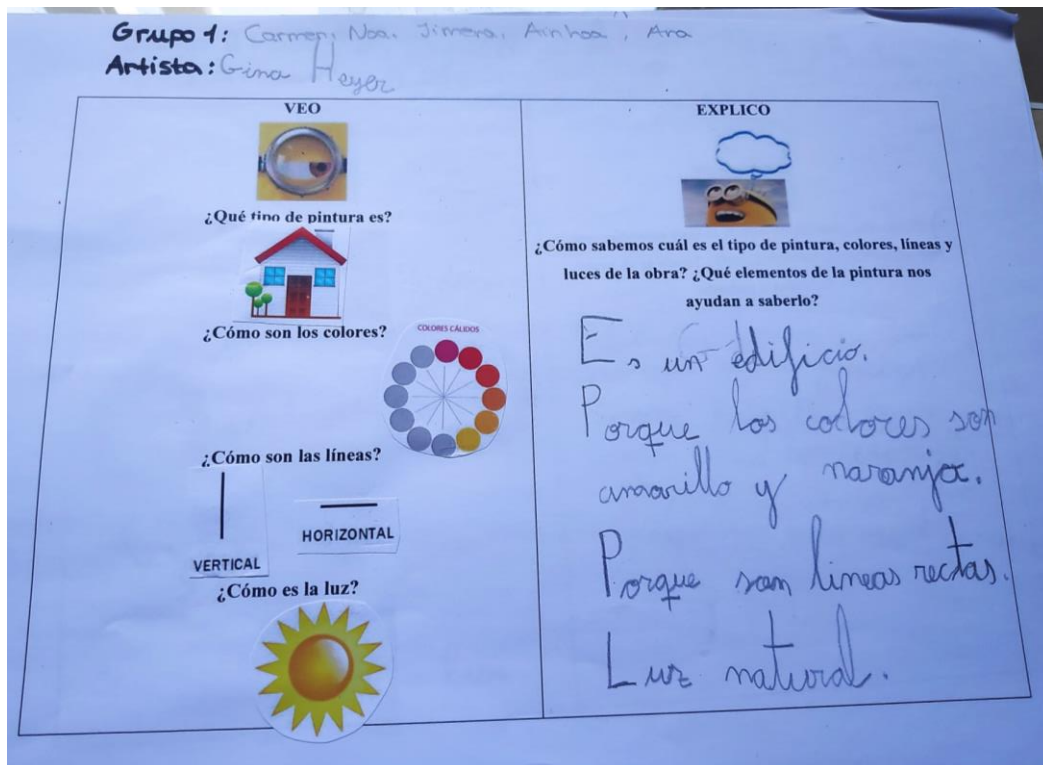 Grupo 1: Carmen, Noa, Jimena, Ainhoa, Ana
Artista: Gina Heyer
VEO
¿Qué tipo de pintura es?
¿Cómo son los colores?
COLORES CÁLIDOS
¿Cómo son las líneas?
VERTICAL
HORIZONTAL
¿Cómo es la luz?
EXPLICO
¿Cómo sabemos cuál es el tipo de pintura, colores, líneas y
luces de la obra? ¿Qué elementos de la pintura nos
ayudan a saberlo?
Es un edificio.
Porque los colores son
amarillo y naranja.
Porque son lineas rectas.
Luz natural.